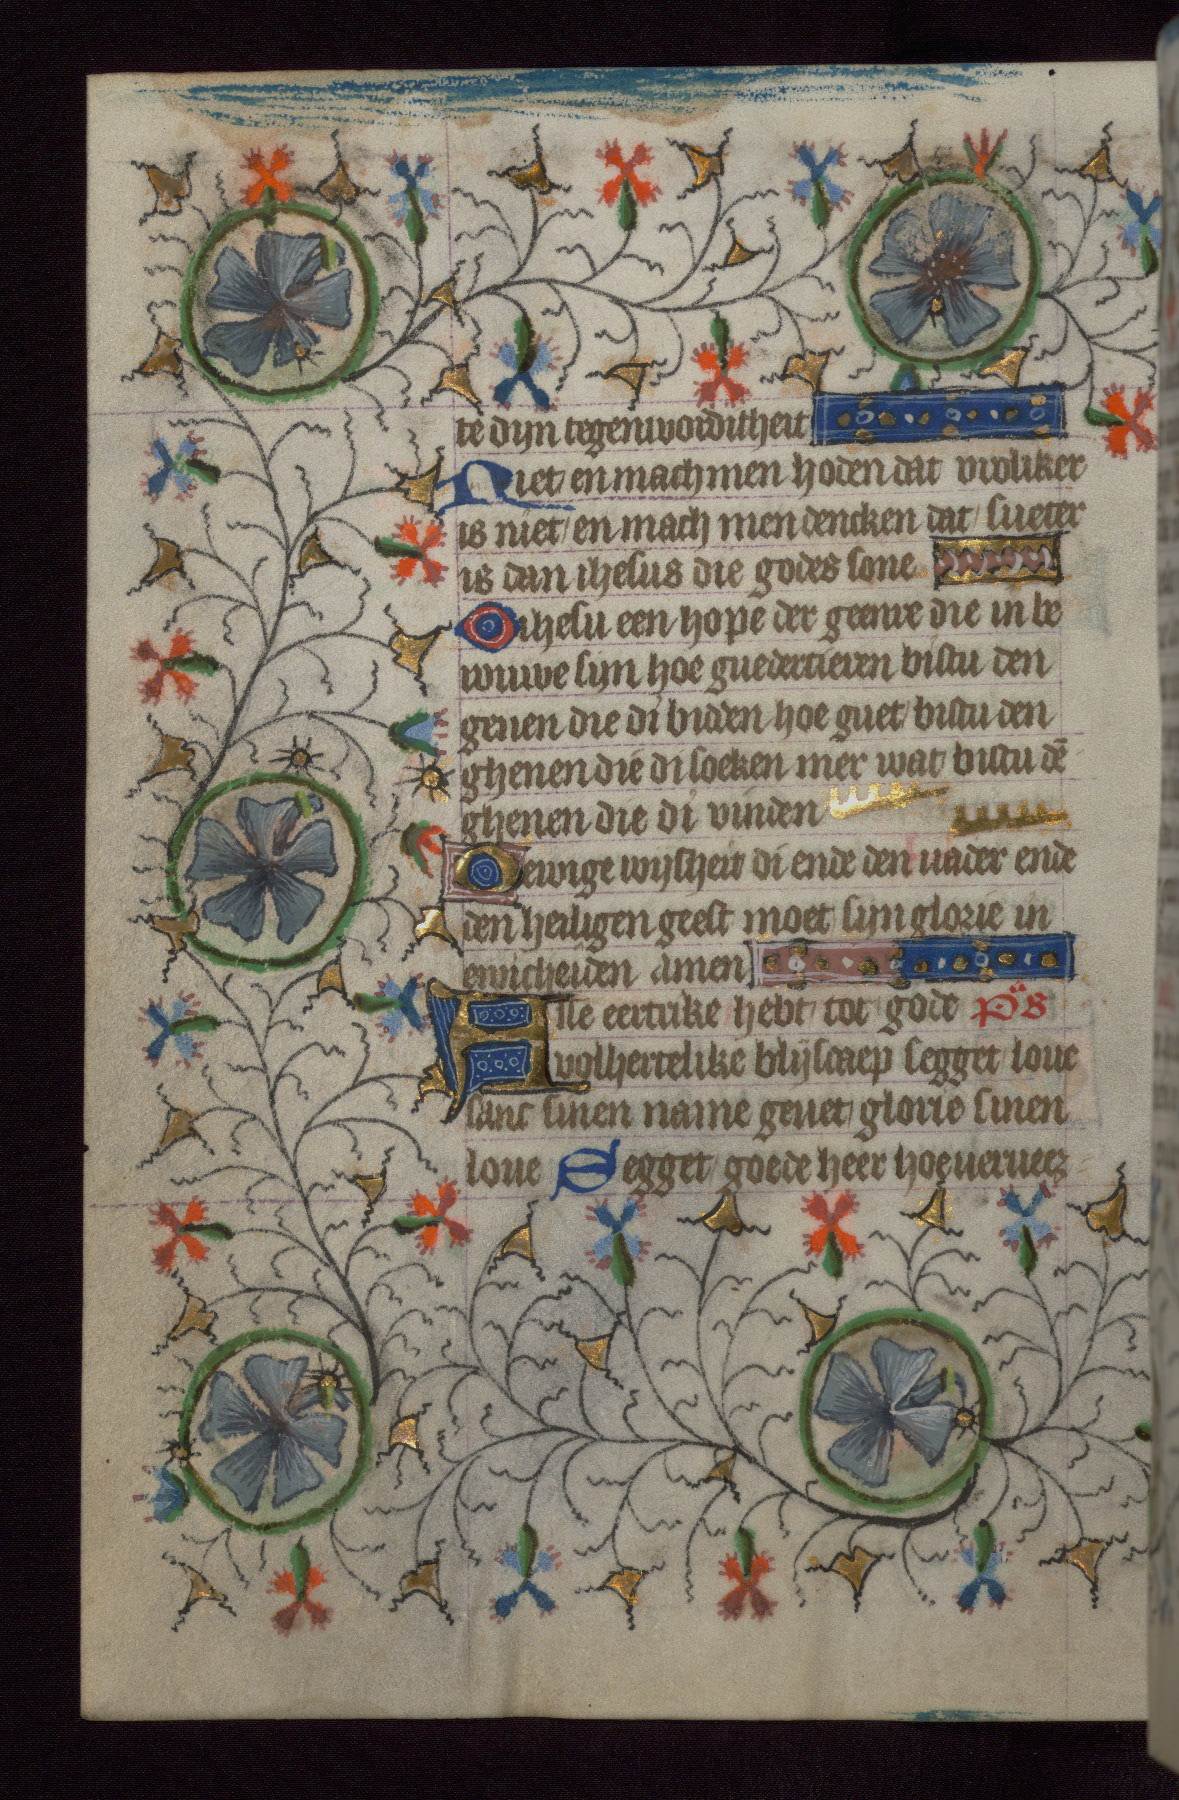 te dijn tegenwordicheit
Niet en mach men horen dat vroliker
is niet en mach men dencken dat sueter
is dan ihesus die godes sone
O ihesu een hope der geenre die in be
rouwe sijn hoe guedertieren bistu den
genen die di bidden hoe guet bistu den
ghenen die di soeken mer wat bistu dē
ghenen die di vinden
O ewige wijsheit di ende den vader ende
den heiligen geest moet sijn glorie in
ewicheiden amen
Alle eertrike hebt tot gode p̄s
volhertelike blijscaep segget loue
sanc sinen name geuet glorie sinen
loue Segget goede heer hoe verueez